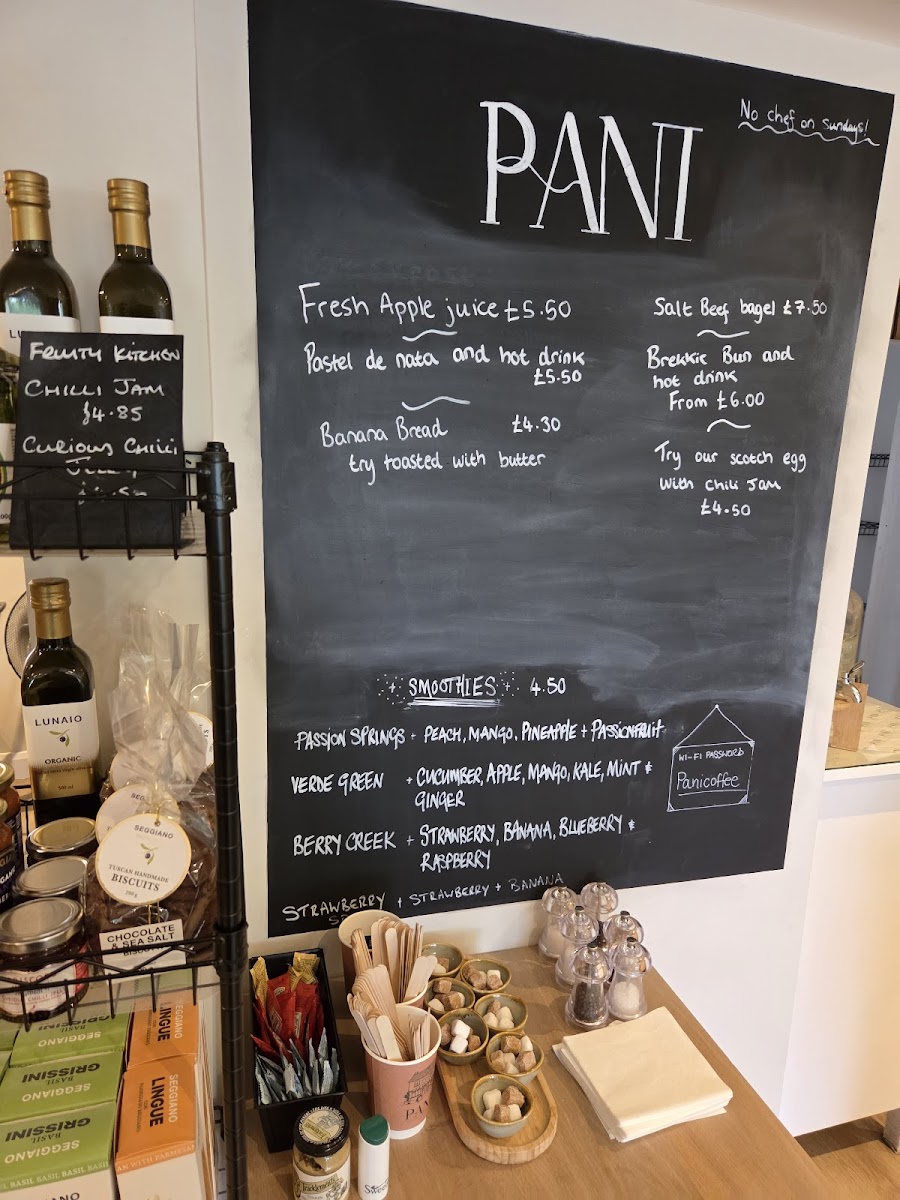 PANI
No chef on sundays!
Fresh Apple juice £5.50
Pastel de nata and hot drink
£5.50
Banana Bread £4.30
try toasted with butter
Salt Beef bagel £7.50
Brekkie Bun and
hot drink
From £6.00
Try our scotch egg
with chili Jam
£4.50
SMOOTHIES 4.50
PASSION SPRINGS - PEACH, MANGO, PINEAPPLE + PASSIONFRUIT
VERDE GREEN + CUCUMBER, APPLE, MANGO, KALE, MINT &
GINGER
BERRY CREEK + STRAWBERRY, BANANA, BLUEBERRY &
RASPBERRY
STRAWBERRY + STRAWBERRY + BANANA
WI-FI PASSWORD
Panicoffee
FRUITY KITCHEN
CHILLI JAM
£4.85
CURIOUS CHILLI
LUNAIO
ORGANIC
SEGGIANO
TUSCAN HANDMADE
BISCUITS
200g
CHOCOLATE
& SEA SALT
GRISSINI
BASIL
SEGGIANO
GRISSINI
BASIL
SEGGIANO
GRISSINI
SEGGIANO
LINGUE
SEGGIANO
LINGUE
SEGGIANO
PANI